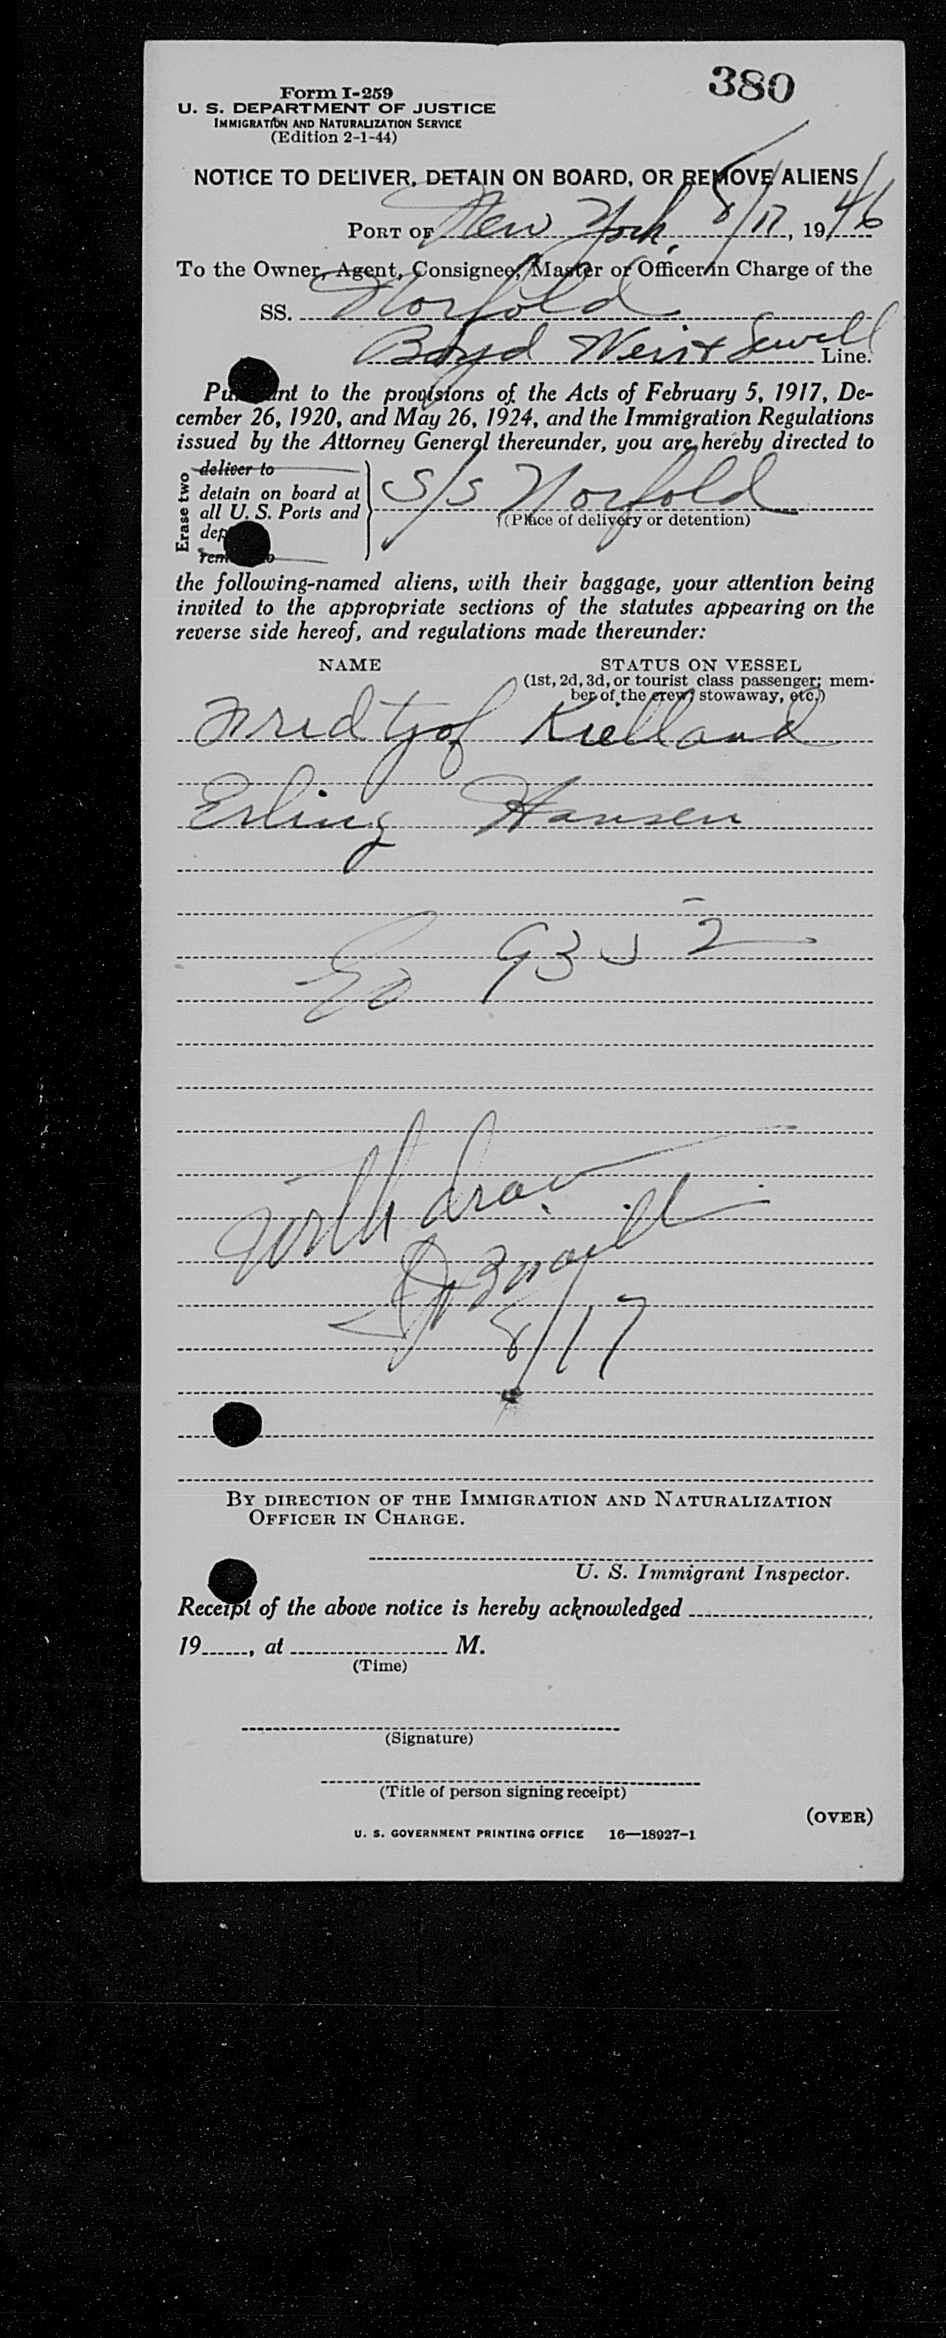 380
Form I-259
U. S. DEPARTMENT OF JUSTICE
IMMIGRATION AND NATURALIZATION SERVICE
(Edition 2-1-44)
NOTICE TO DELIVER, DETAIN ON BOARD, OR REMOVE ALIENS
PORT OF New York, 8/17, 1946
To the Owner, Agent, Consignee, Master or Officer in Charge of the
SS. Norfold
Boyd Weir & Sewell Line.
Pursuant to the provisions of the Acts of February 5, 1917, De-
cember 26, 1920, and May 26, 1924, and the Immigration Regulations
issued by the Attorney General thereunder, you are hereby directed to
Erase two
deliver to
detain on board at
all U. S. Ports and
dep
remove to
S/S Norfold
(Place of delivery or detention)
the following-named aliens, with their baggage, your attention being
invited to the appropriate sections of the statutes appearing on the
reverse side hereof, and regulations made thereunder:
NAME STATUS ON VESSEL
(1st, 2d, 3d, or tourist class passenger; mem-
ber of the crew, stowaway, etc.)
Fridtjof Kielland
Erling Hansen
9352
Withdraw
8/17
BY DIRECTION OF THE IMMIGRATION AND NATURALIZATION
OFFICER IN CHARGE.
U. S. Immigrant Inspector.
Receipt of the above notice is hereby acknowledged
19 , at M.
(Time)
(Signature)
(Title of person signing receipt)
(OVER)
U. S. GOVERNMENT PRINTING OFFICE 16—18927-1